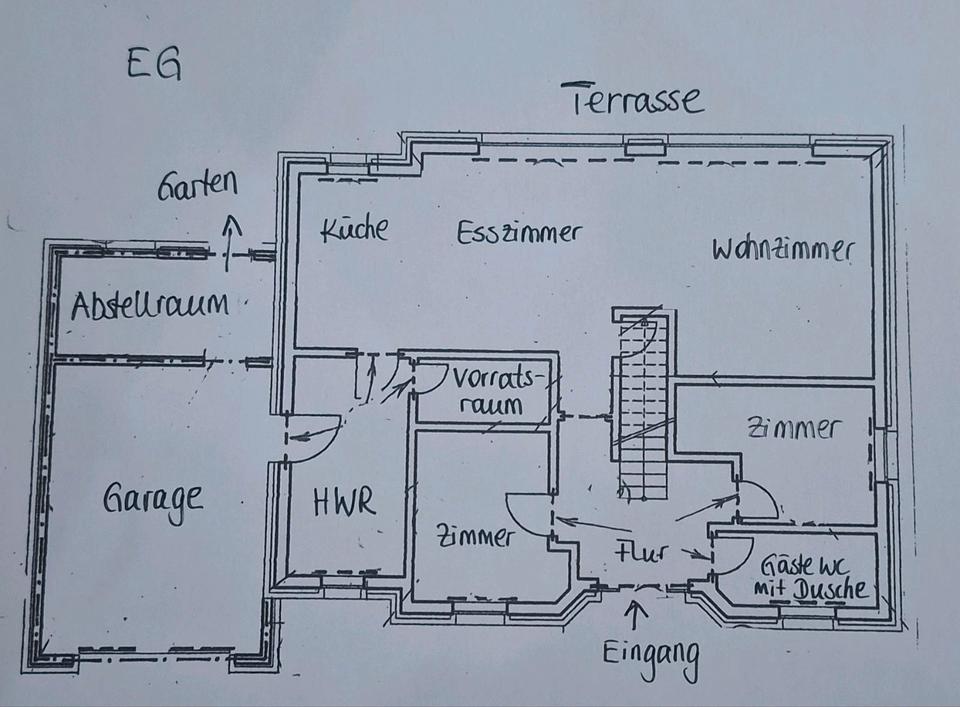 EG
Terrasse
Garten
Küche
Esszimmer
Wohnzimmer
Abstellraum
Vorrats-
raum
Zimmer
Garage
HWR
Zimmer
Flur
Gäste WC
mit Dusche
Eingang